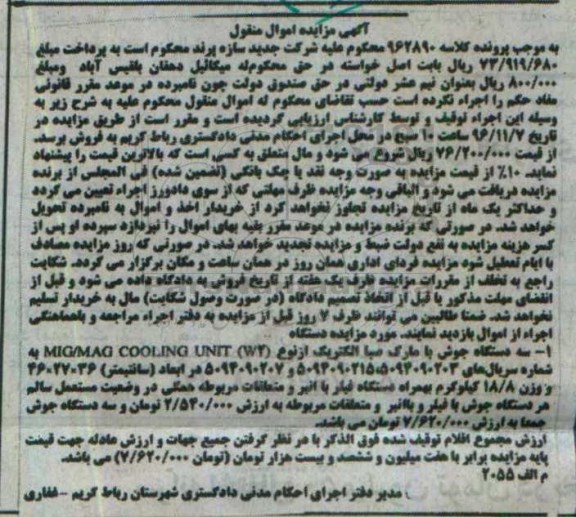 آگهی مزایده اموال منقول
به موجب پرونده کلاسه ۹۶۲۸۹۰ محکوم علیه شرکت جدید سازه پرند محکوم است به پرداخت مبلغ
۷۳/۹۱۹/۶۸۰ ریال بابت اصل خواسته در حق محکوم‌له میکائیل دهقان بلقیس آباد ومبلغ
۸۰۰/۰۰۰ ریال بعنوان نیم عشر دولتی در حق صندوق دولت چون نامبرده در موعد مقرر قانونی
مفاد حکم را اجراء نکرده است حسب تقاضای محکوم له اموال منقول محکوم علیه به شرح زیر به
وسیله این اجراء توقیف و توسط کارشناس ارزیابی گردیده است و مقرر است از طریق مزایده در
تاریخ ۹۶/۱۱/۷ ساعت ۱۰ صبح در محل اجرای احکام مدنی دادگستری رباط کریم به فروش برسد.
از قیمت ۷۶/۲۰۰/۰۰۰ ریال شروع می شود و مال متعلق به کسی است که بالاترین قیمت را پیشنهاد
نماید. ۱۰٪ از قیمت مزایده به صورت وجه نقد یا چک بانکی (تضمین شده) فی المجلس از برنده
مزایده دریافت می شود و الباقی وجه مزایده ظرف مهلتی که از سوی دادورز اجراء تعیین می گردد
و حداکثر یک ماه از تاریخ مزایده تجاوز نخواهد کرد از خریدار اخذ و اموال به نامبرده تحویل
خواهد شد. در صورتی که برنده مزایده در موعد مقرر بقیه بهای اموال را نپردازد سپرده او پس از
کسر هزینه مزایده به نفع دولت ضبط و مزایده تجدید خواهد شد. در صورتی که روز مزایده مصادف
با ایام تعطیل شود مزایده فردای اداری همان روز در همان ساعت و مکان برگزار می گردد. شکایت
راجع به تخلف از مقررات مزایده ظرف یک هفته از تاریخ فروش به دادگاه داده می شود و قبل از
انقضای مهلت مذکور یا قبل از اتخاذ تصمیم دادگاه (در صورت وصول شکایت) مال به خریدار تسلیم
نخواهد شد. ضمنا طالبین می توانند ظرف ۷ روز قبل از مزایده به دفتر اجراء مراجعه و باهماهنگی
اجراء از اموال بازدید نمایند. مورد مزایده دستگاه
۱- سه دستگاه جوش با مارک صبا الکتریک ازنوع MIG/MAG COOLING UNIT (W۲) به
شماره سریال‌های ۵۰۹۴۰۹۰۲۱۵،۵۰۹۴۰۹۰۲۰۳ و ۵۰۹۴۰۹۰۲۰۷ در ابعاد (سانتیمتر) ۳۶×۲۷×۴۶
و وزن ۱۸/۸ کیلوگرم بهمراه دستگاه فیلر با انبر و متعلقات مربوطه همگی در وضعیت مستعمل سالم
هر دستگاه جوش با فیلر و باانبر و متعلقات مربوطه به ارزش ۲/۵۴۰/۰۰۰ تومان و سه دستگاه جوش
جمعا به ارزش ۷/۶۲۰/۰۰۰ تومان می باشد.
ارزش مجموع اقلام توقیف شده فوق الذکر با در نظر گرفتن جمیع جهات و ارزش عادله جهت قیمت
پایه مزایده برابر با هفت میلیون و ششصد و بیست هزار تومان (تومان ۷/۶۲۰/۰۰۰) می باشد.
م الف ۲۰۵۵
مدیر دفتر اجرای احکام مدنی دادگستری شهرستان رباط کریم -غفاری